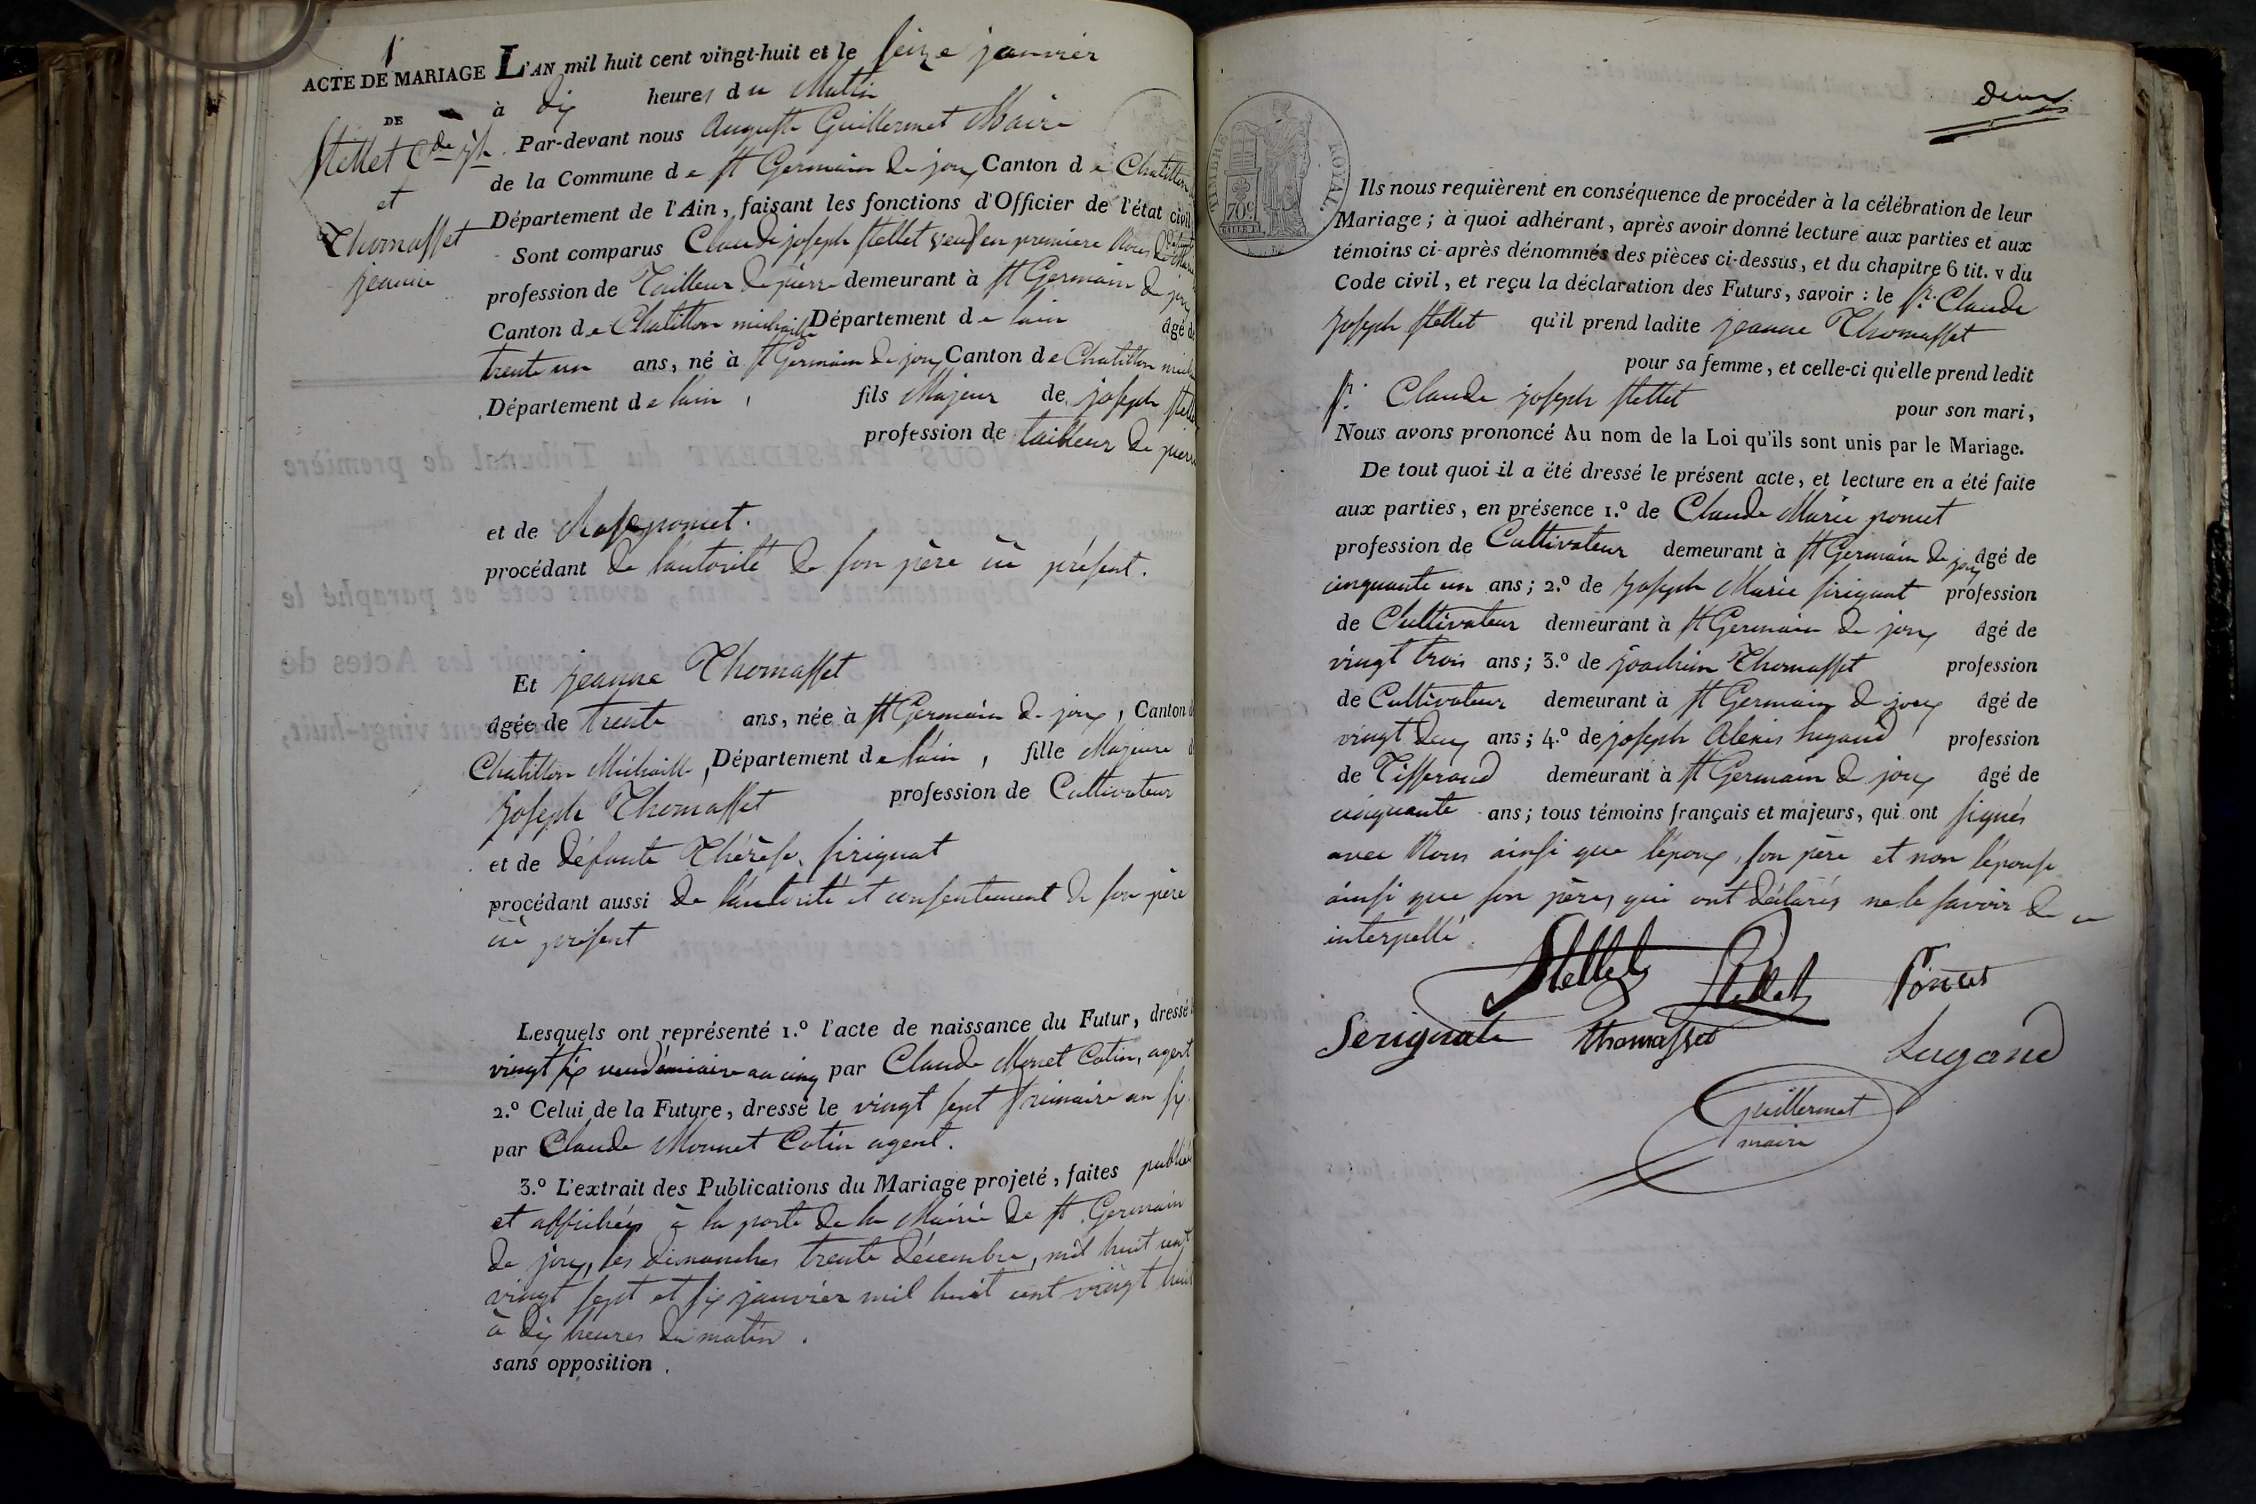 1
ACTE DE MARIAGE L'AN mil huit cent vingt-huit et le seize janvier
à dix heures du Matin
DE
Stellet Cde jh
et
Thomasset
jeanne
Par-devant nous Auguste Guillermet Maire
de la Commune de St Germain de joux Canton de Chatillon
Département de l'Ain, faisant les fonctions d'Officier de l'état civil
Sont comparus Claude joseph Stellet veuf en premiere Noces
profession de Tailleur de pierre demeurant à St Germain de joux
Canton de Chatillon michaille Département de lain âgé de
trente un ans, né à St Germain de joux Canton de Chatillon
Département de lain, fils Majeur de joseph Stellet
profession de tailleur de pierre
et de Rose poncet.
procédant de l'autorité de son père ici présent.
Et jeanne Thomasset
âgée de trente ans, née à St Germain de joux, Canton de
Chatillon Michaille, Département de lain, fille Majeure de
joseph Thomasset profession de Cultivateur
et de défunte Thérèse Sirignat
procédant aussi de l'autorité et consentement de son père
ici présent
Lesquels ont représenté 1.º l'acte de naissance du Futur, dressé le
vingt six vendémiaire an cinq par Claude Monet Cotin, agent
2.º Celui de la Future, dressé le vingt sept frimaire an six
par Claude Monnet Cotin agent.
3.º L'extrait des Publications du Mariage projeté, faites publiées
et affichées à la porte de la Mairie de St Germain
de joux, les dimanches trente décembre, mil huit cent
vingt sept et six janvier mil huit cent vingt huit
à dix heures du matin.
sans opposition.
deux
TIMBRE ROYAL
70c
Ils nous requièrent en conséquence de procéder à la célébration de leur
Mariage; à quoi adhérant, après avoir donné lecture aux parties et aux
témoins ci-après dénommés des pièces ci-dessus, et du chapitre 6 tit. v du
Code civil, et reçu la déclaration des Futurs, savoir: le Sr. Claude
joseph Stellet qu'il prend ladite jeanne Thomasset
pour sa femme, et celle-ci qu'elle prend ledit
Sr. Claude joseph Stellet pour son mari,
Nous avons prononcé Au nom de la Loi qu'ils sont unis par le Mariage.
De tout quoi il a été dressé le présent acte, et lecture en a été faite
aux parties, en présence 1.º de Claude Marie poncet
profession de Cultivateur demeurant à St Germain de joux âgé de
cinquante un ans; 2.º de joseph Marie sirignat profession
de Cultivateur demeurant à St Germain de joux âgé de
vingt trois ans; 3.º de joachim Thomasset profession
de Cultivateur demeurant à St Germain de joux âgé de
vingt deux ans; 4.º de joseph Alexis lugand profession
de Tisserand demeurant à St Germain de joux âgé de
cinquante ans; tous témoins français et majeurs, qui ont signés
avec Nous ainsi que l'époux, son père et non l'épouse
ainsi que son père, qui ont déclarés ne le savoir de ce
interpellé.
Stellet Stellet Poncet
Serignat thomasset Lugand
Guillermet
maire